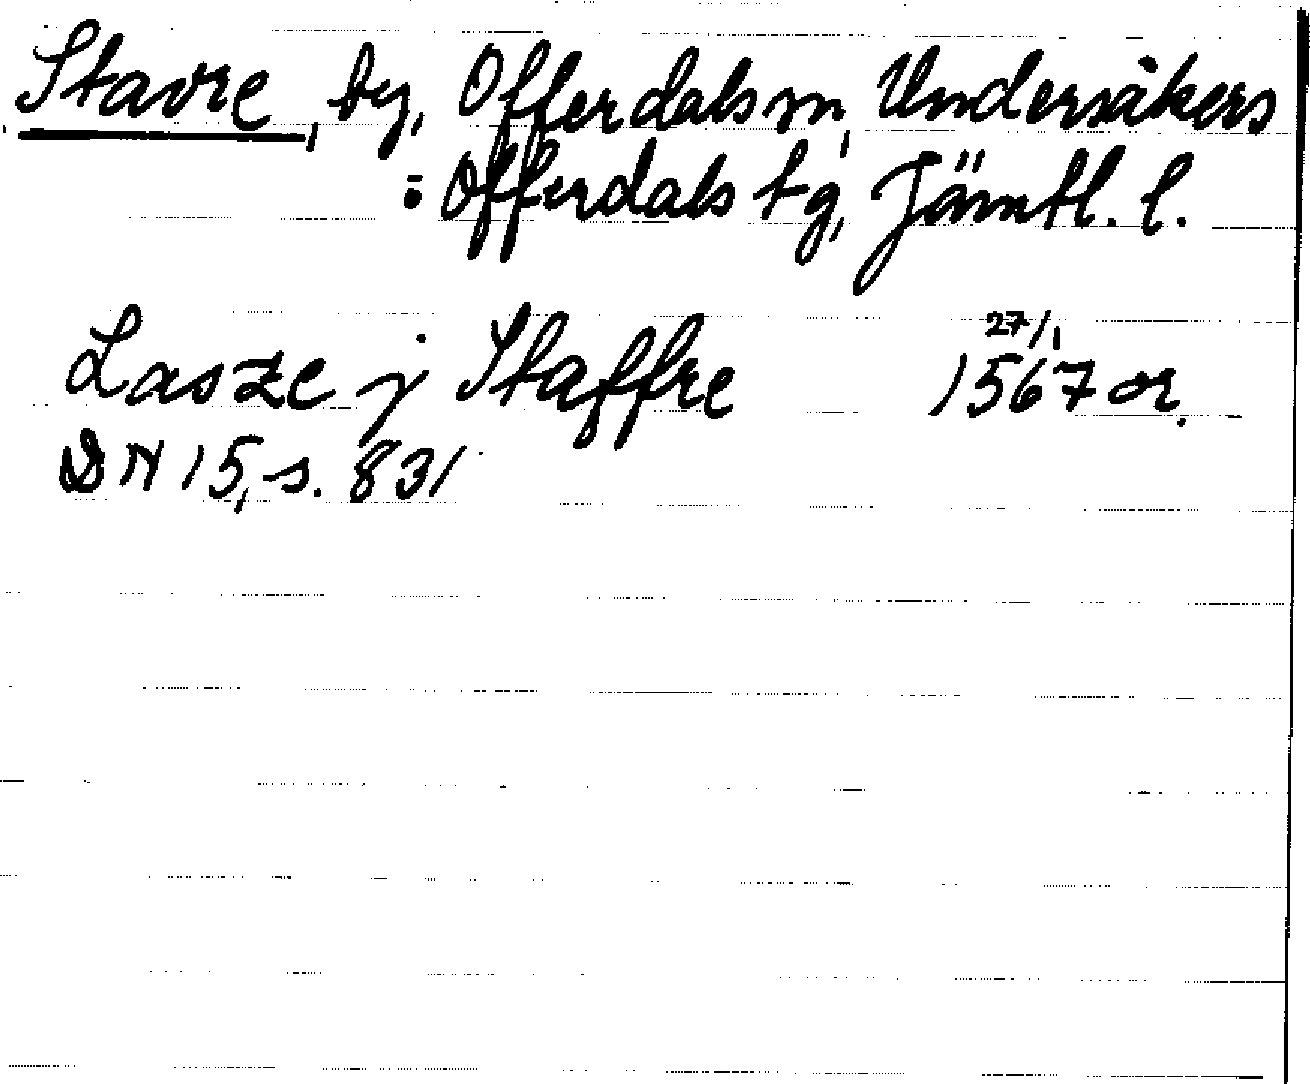 Stavre, by, Offerdals sn, Undersåkers
o Offerdals tg, Jämtl. l.
Lasze j Staffre 27/1 1567 or.
DN 15, s. 831